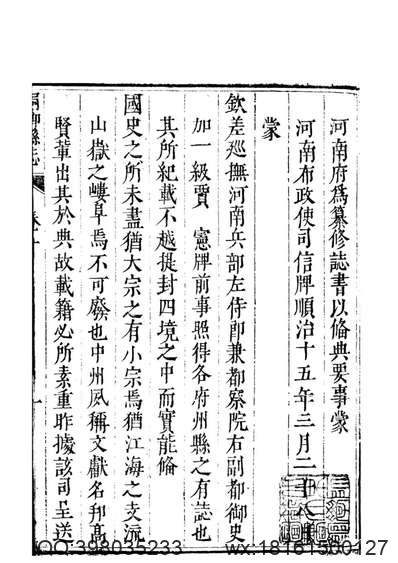 河南府爲纂修誌書以備典要事蒙
河南布政使司信牌順治十五年三月二十八日
蒙
欽差廵撫河南兵部左侍郎兼都察院右副都御史
加一級賈 憲牌前事照得各府州縣之有誌也
其所紀載不越提封四境之中而實能備
國史之所未盡猶大宗之有小宗焉猶江海之支流
山嶽之嶁阜焉不可廢也中州夙稱文獻名邦髙
賢輩出其於典故載籍必所素重昨據該司呈送
縣志
QQ:398035233 wx:18161500127